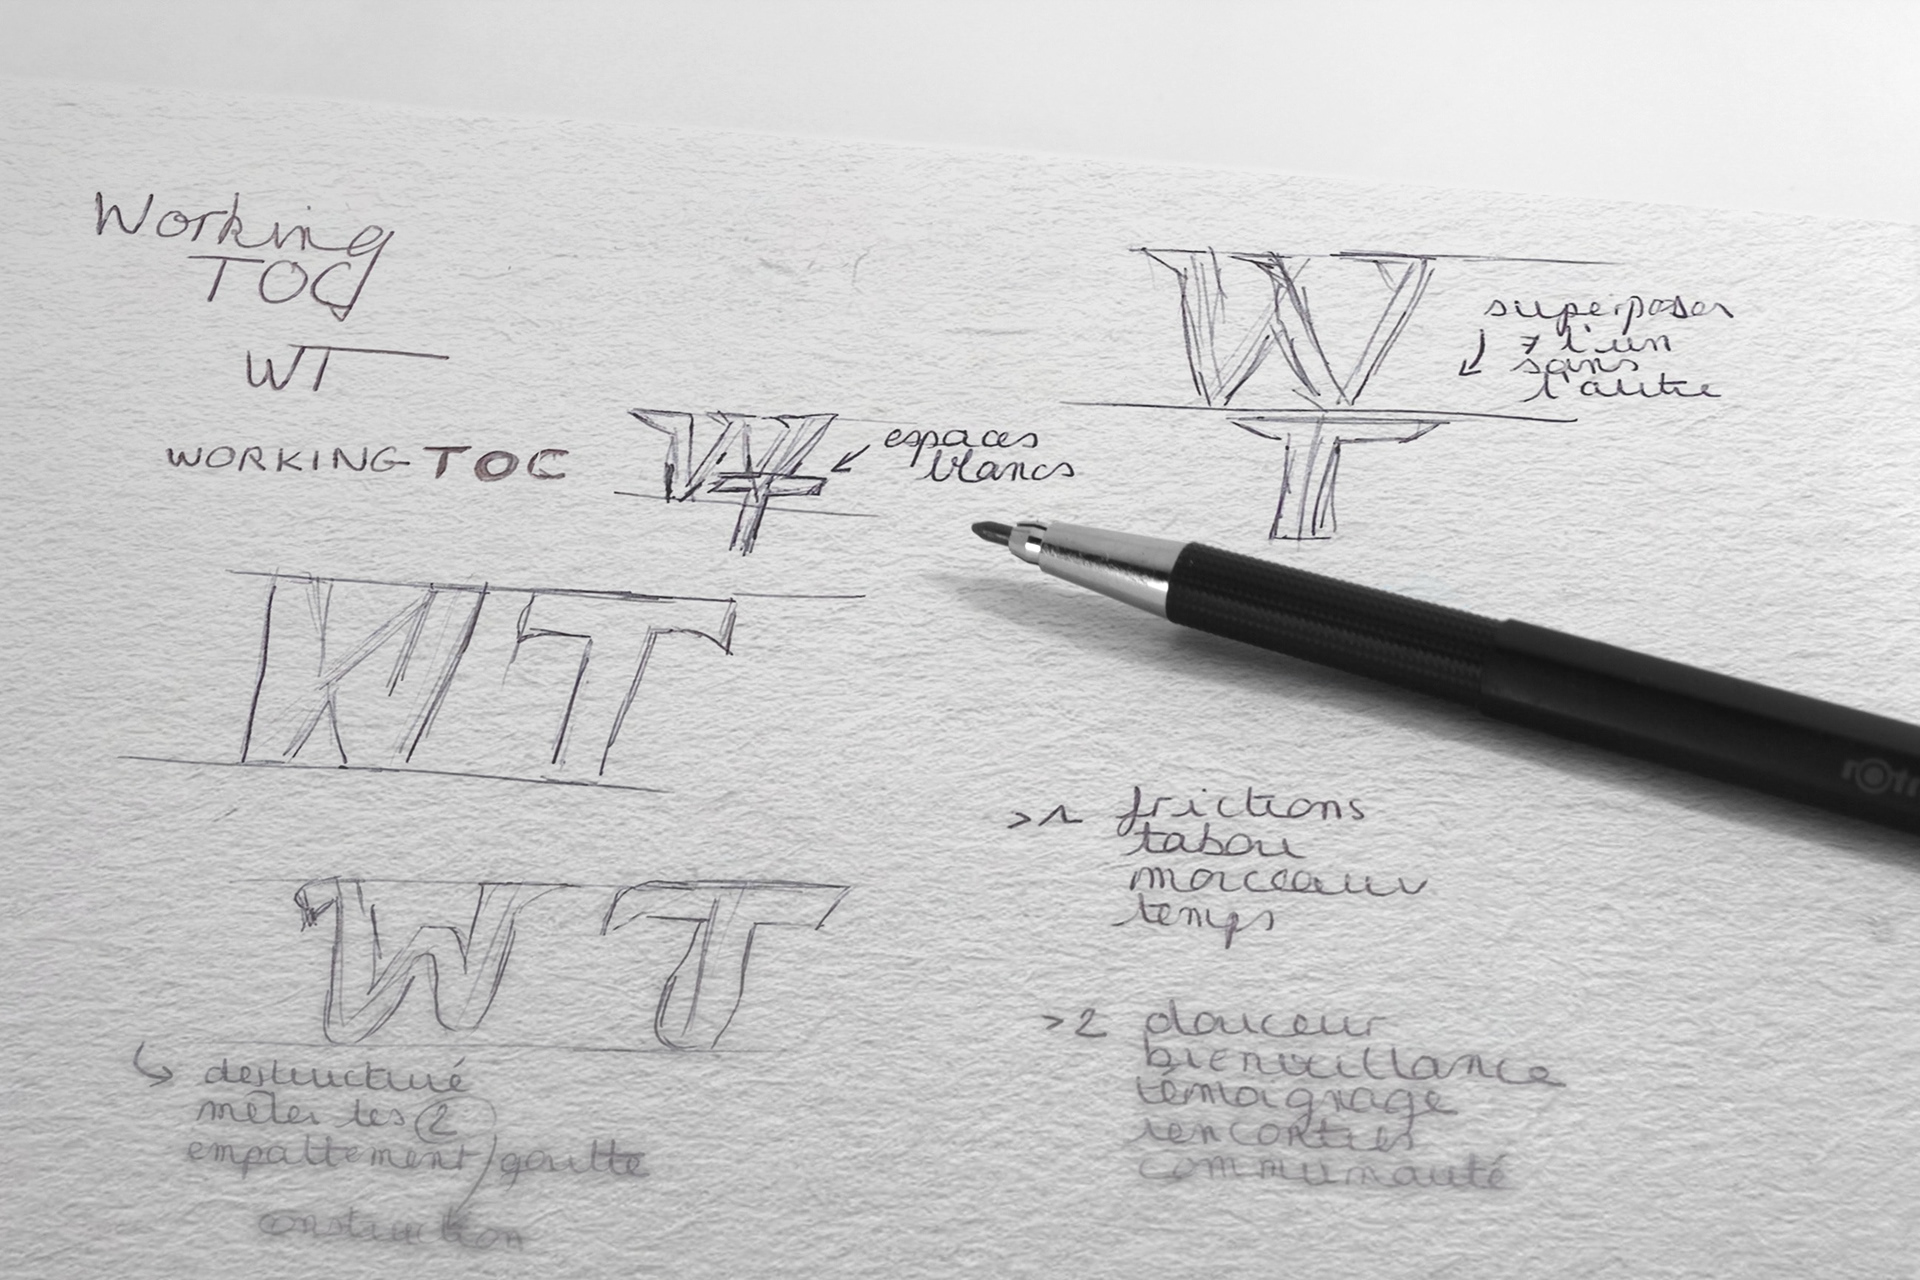 Working
TOC
WT
WORKING TOC
W
T
espaces
blancs
W
T
superposer
l'un
sans
l'autre
KIT
WT
destructuré
mêler les 2
empattement/goutte
construction
>1 frictions
tabou
morceaux
temps
>2 douceur
bienveillance
témoignage
rencontres
communauté
rotr